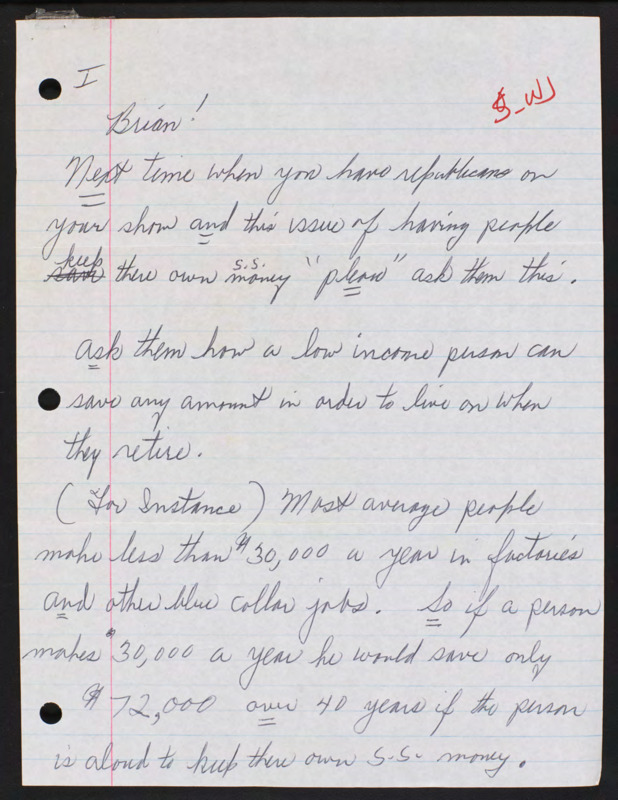 I
S-W
Brian!
Next time when you have republicans on
your show and this issue of having people
keep
save there own s.s. money "please" ask them this.
ask them how a low income person can
save any amount in order to live on when
they retire.
(For Instance) Most average people
make less than $30,000 a year in factories
and other blue collar jobs. So if a person
makes $30,000 a year he would save only
$72,000 over 40 years if the person
is aloud to keep there own S.S. money.